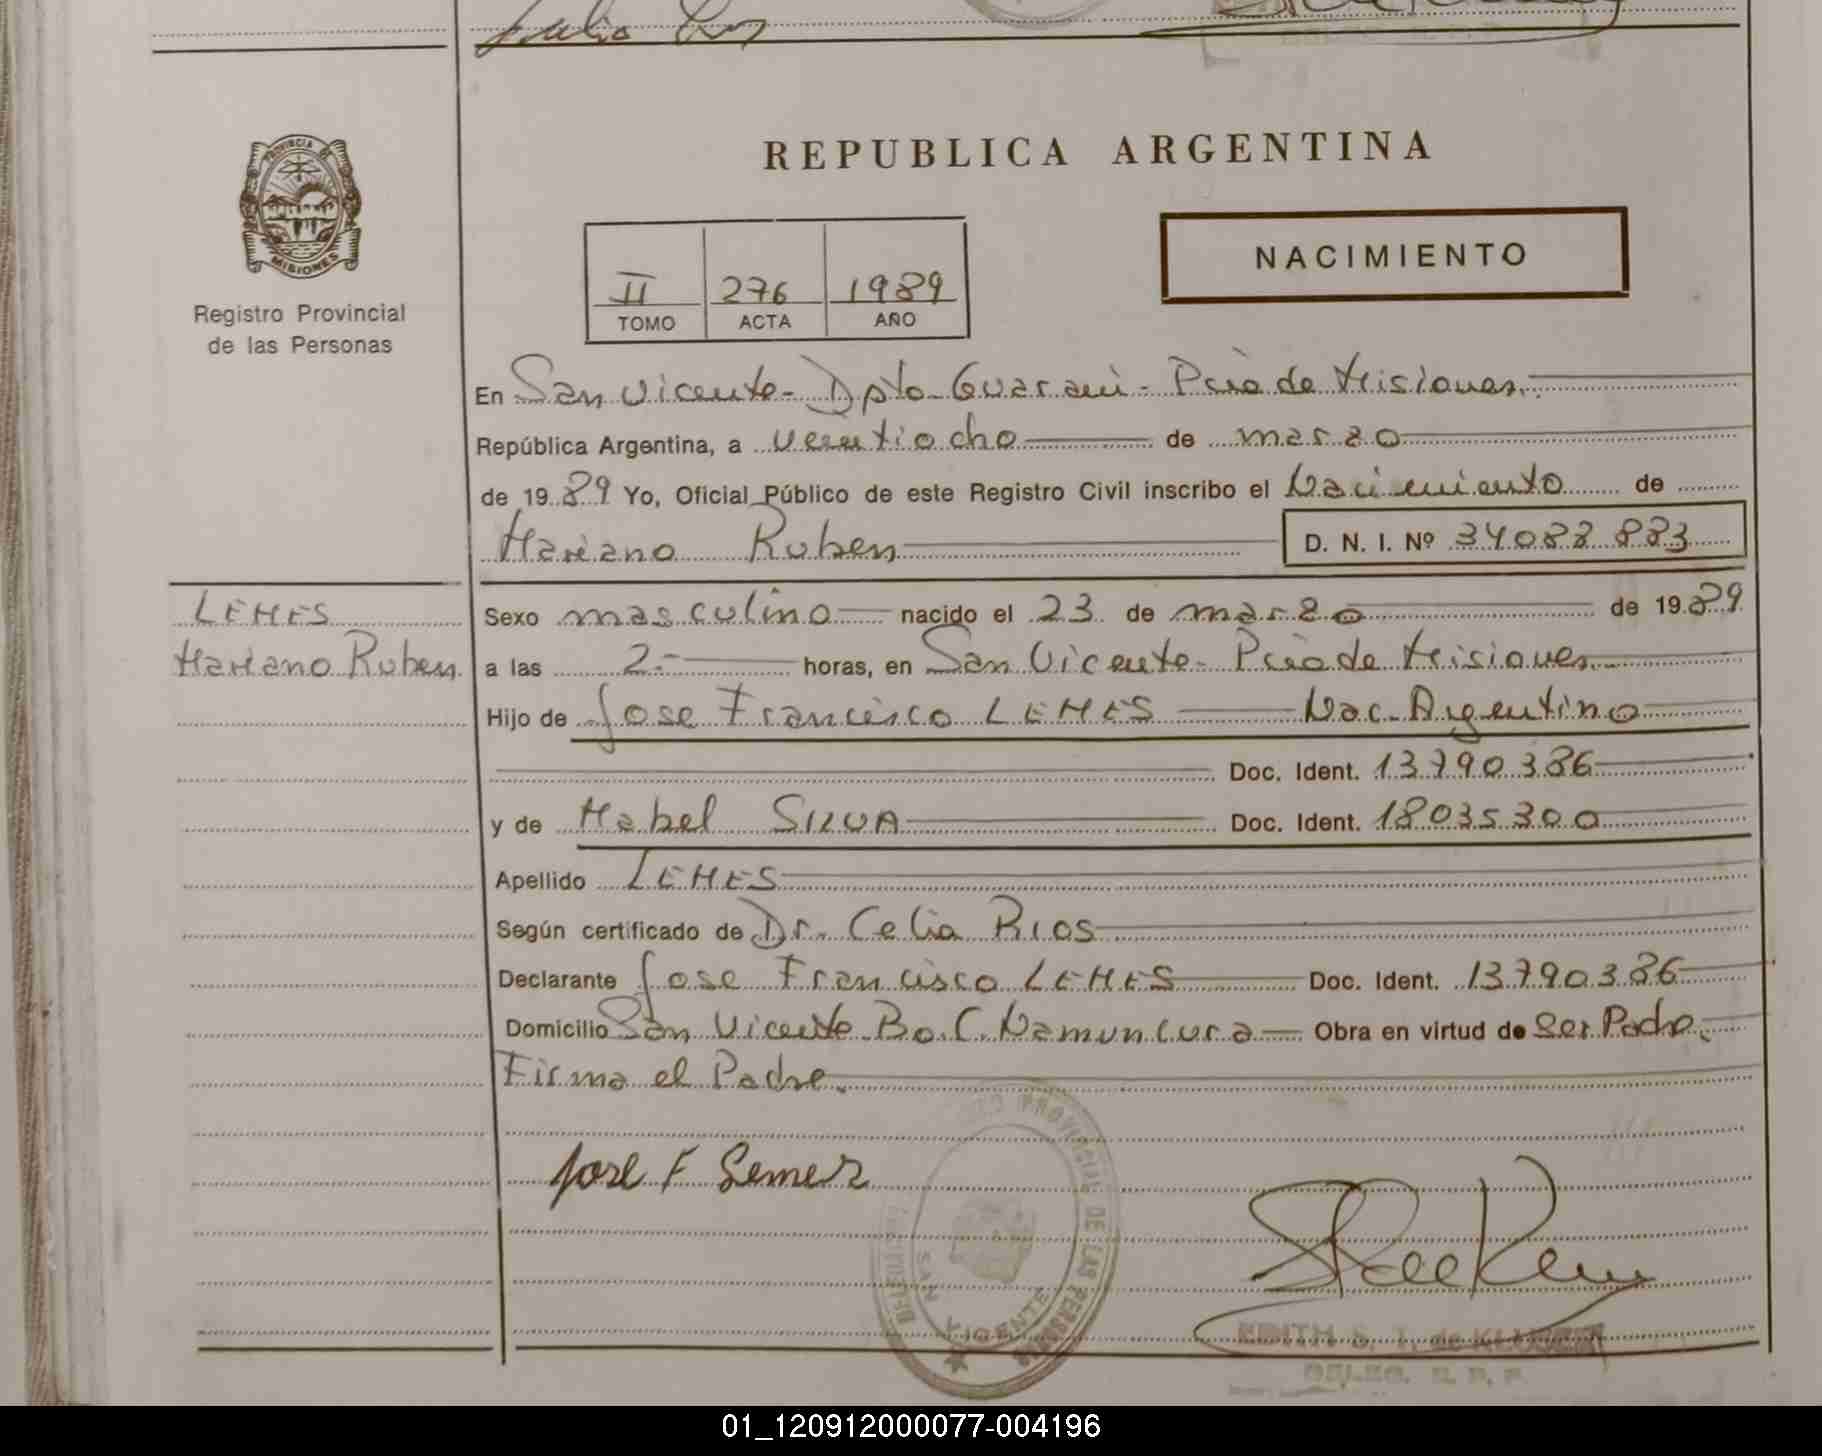 Julio
REPUBLICA ARGENTINA
PROVINCIA DE
MISIONES
Registro Provincial
de las Personas
II 276 1989
TOMO ACTA AÑO
NACIMIENTO
En San Vicente - Dpto Guarani - Pcia de Misiones.
República Argentina, a veintiocho de marzo
de 1989 Yo, Oficial Público de este Registro Civil inscribo el Nacimiento de
Mariano Ruben D. N. I. Nº 34088 883
LEMES
Mariano Ruben
Sexo masculino nacido el 23 de marzo de 1989
a las 2.- horas, en San Vicente - Pcia de Misiones.
Hijo de Jose Francisco LEMES Nac. Argentino
Doc. Ident. 13.790.386
y de Mabel SILVA Doc. Ident. 18035300
Apellido LEMES
Según certificado de Dr. Celia RIOS
Declarante Jose Francisco LEMES Doc. Ident. 13.790.386
Domicilio San Vicente Bo. C. Namuncura Obra en virtud de Ser Padre.
Firma el Padre.
Jose F Lemes
PROVINCIAL DE LAS PERSONAS
SAN VICENTE
EDITH S. T. de
DELEG. R. P. P.
01_120912000077-004196